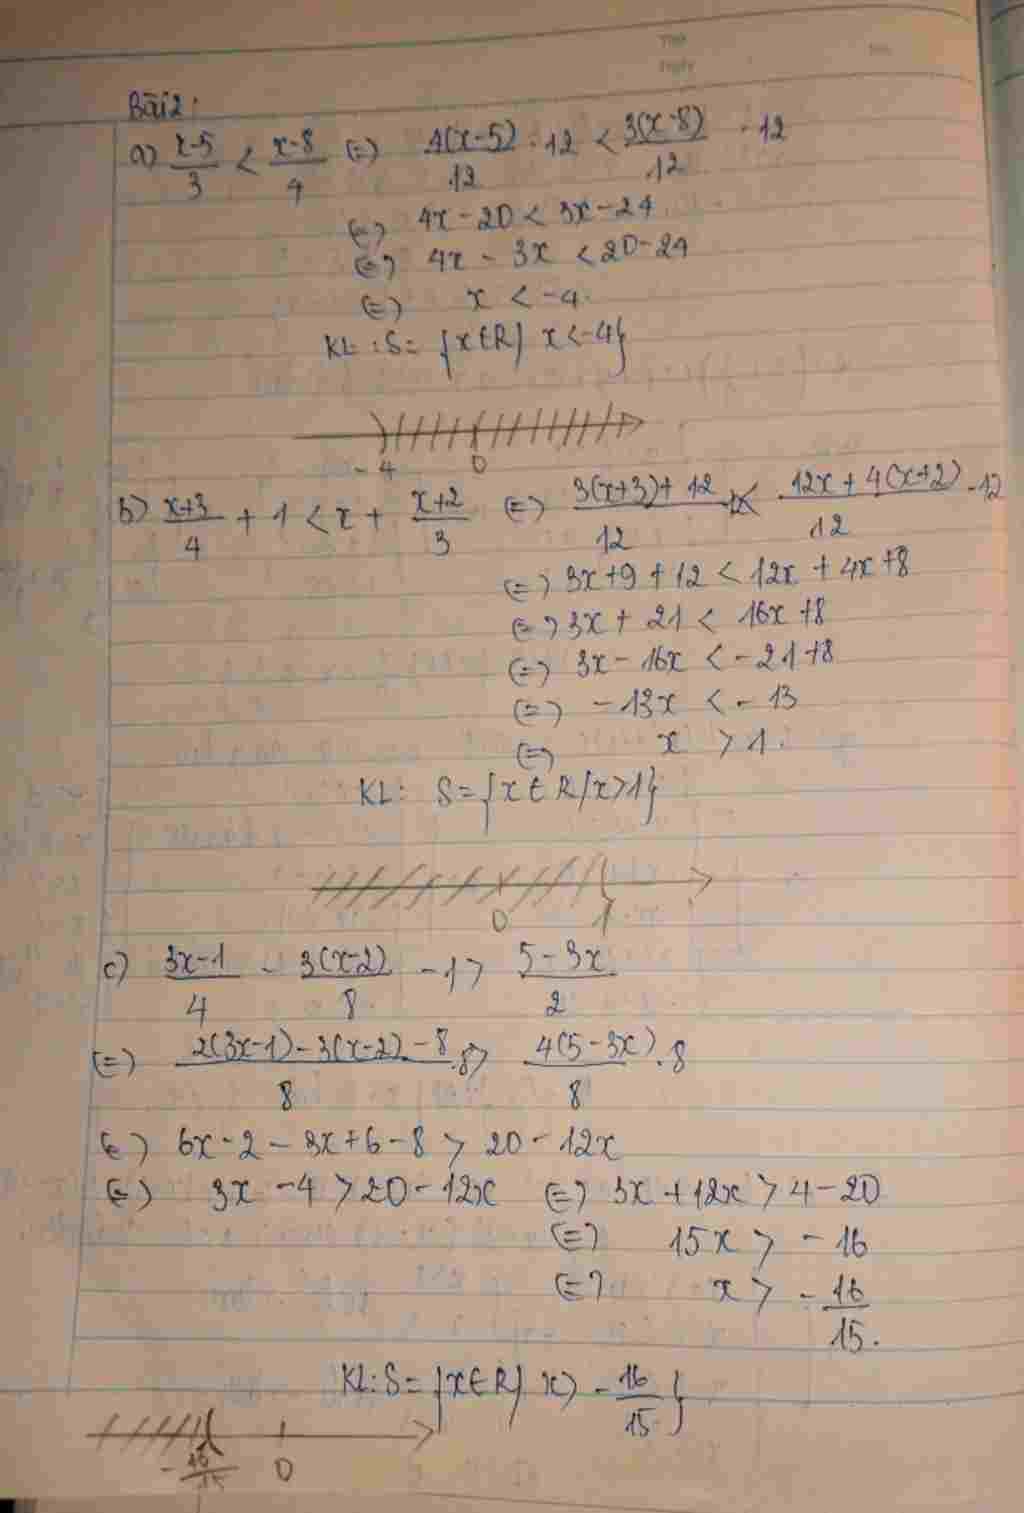 Bài 2:
a) x-5/3 < x-8/4 (=) 4(x-5)/12 .12 < 3(x-8)/12 .12
(=) 4x - 20 < 3x - 24
(=) 4x - 3x < 20 - 24
(=) x < -4.
KL: S = {x ∈ R / x < -4}
-4 0
b) x+3/4 + 1 < x + x+2/3 (=) 3(x+3) + 12/12 .12 < 12x + 4(x+2)/12 .12
(=) 3x + 9 + 12 < 12x + 4x + 8
(=) 3x + 21 < 16x + 8
(=) 3x - 16x < -21 + 8
(=) -13x < -13
(=) x > 1.
KL: S = {x ∈ R / x > 1}
0 1
c) 3x-1/4 - 3(x-2)/8 - 1 > 5-3x/2
(=) 2(3x-1) - 3(x-2) - 8/8 .8 > 4(5-3x)/8 .8
(=) 6x - 2 - 3x + 6 - 8 > 20 - 12x
(=) 3x - 4 > 20 - 12x (=) 3x + 12x > 4 - 20
(=) 15x > -16
(=) x > -16/15.
KL: S = {x ∈ R / x > -16/15}
-16/15 0